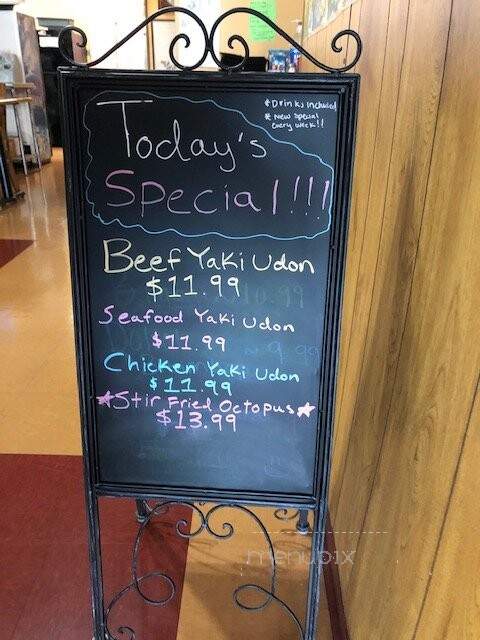 Today's
Special!!!
*Drinks Included
* New Special
Every week!!
Beef Yaki Udon
$11.99
Seafood Yaki Udon
$11.99
Chicken Yaki Udon
$11.99
★Stir Fried Octopus★
$13.99
menupix